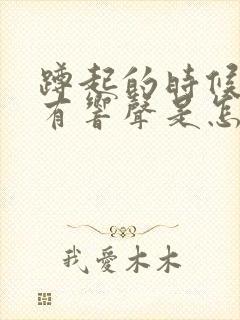 蹲起的時候
有響聲是怎
我愛木木